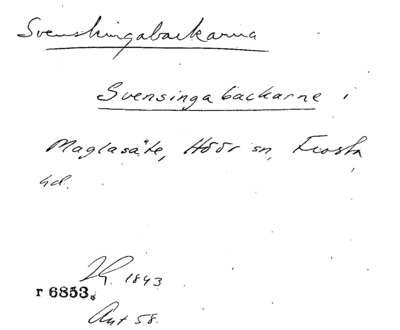 Svenskingabackarna
Svensingabackarne i
Maglasäte, Höör sn, Frosta
hd.
1843
r 6853.
Ant 58.